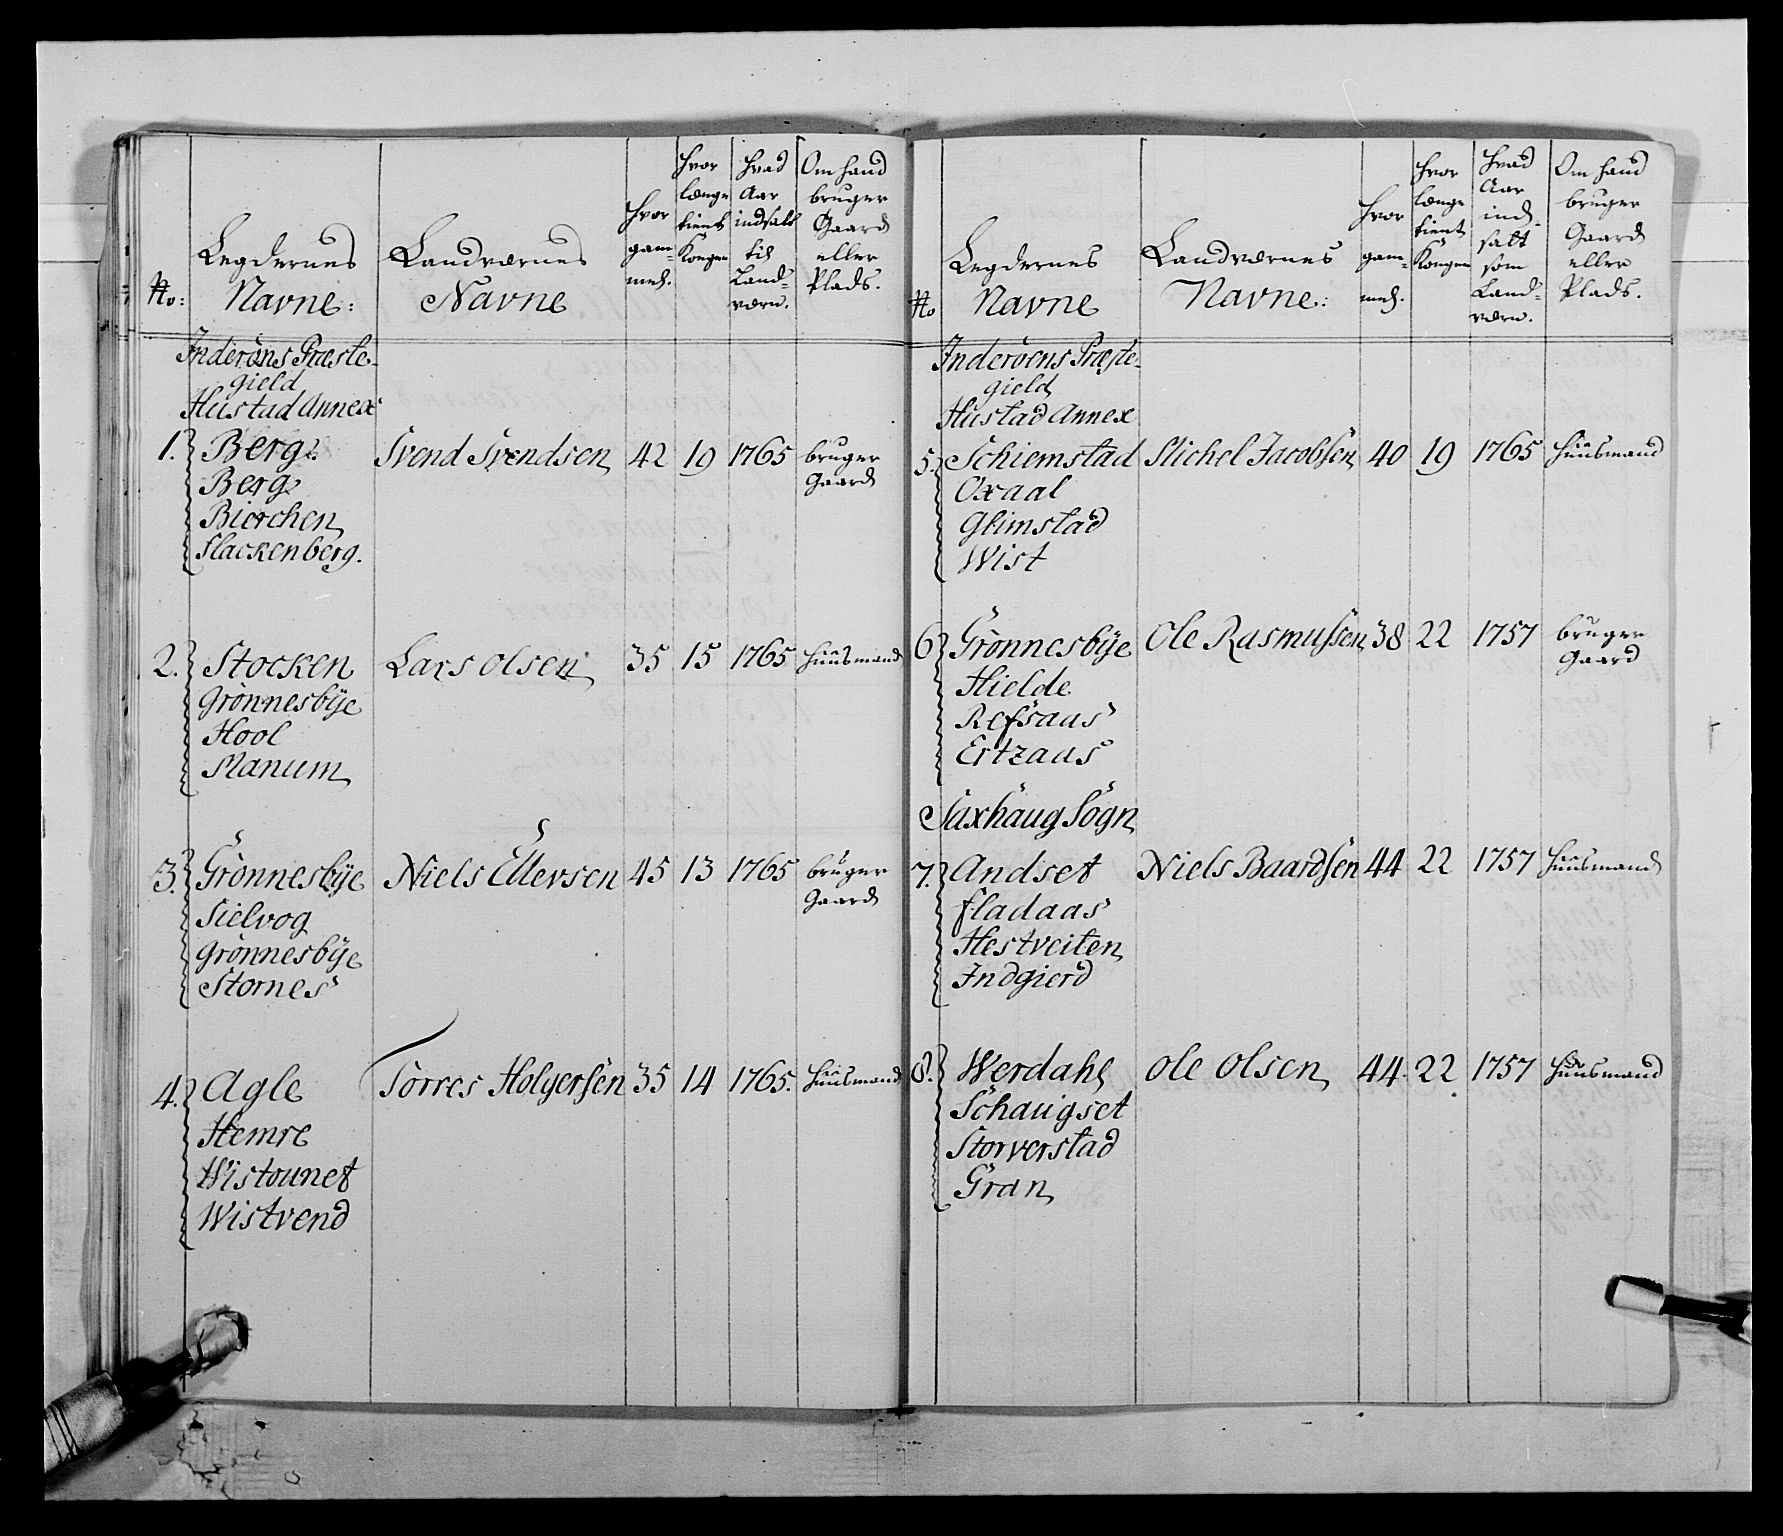 No: Legdernes Navne: Landværnes Navne Hvor gam- mel. Hvor længe tient Kongen Hvad Aar indsatt til Land- værn. Om hand bruger Gaard eller Plads.
Inderöns Præste-
gield
Hustad Annex
1. Berg. Svend Svendsen 42 19 1765 bruger
Berg Gaard
Bierchen
Flackenberg.
2. Stocken Lars Olsen 35 15 1765 Huusmand
Grönnesbÿe
Hool
Manum
3. Grönnesbÿe Niels Ellevsen 45 13 1765 bruger
Sielvog Gaard
Grönnesbÿe
Stornes
4. Agle Torres Holgersen 35 14 1765. Huusmand
Hemre
Wistounet
Wistvend
No Legdernes Navne Landværnes Navne: Hvor gam- mel. Hvor længe tient Kongen Hvad Aar ind- satt som Land- værn. Om hand bruger Gaard eller Plads.
Inderöens Præste-
gield
Hustad Annex
5. Schiemstad Michel Jacobsen 40 19 1765 Huusmand
Oxaal
Glimstad
Wist
6 Grönnesbÿe Ole Rasmussen 38 22 1757 bruger
Hielde Gaard
Refsaas
Ertzaas
Saxhaug Sogn
7. Andset Niels Baardsen 44 22 1757 Huusmand
Fladaas
Hestveiten
Indgierd
8. Werdahl Ole Olsen 44. 22 1757 Huusmand
Schaugset
Storverstad
Gran